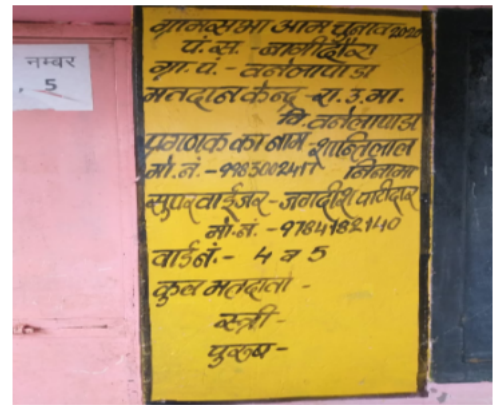 नम्बर
5
ग्रामसभा आम चुनाव 2020
पं. स. - बागीदौरा
ग्रा. पं. - वनेलापाडा
मतदान केन्द्र - रा. उ. मा.
वि. वनेलापाडा
प्रगणक का नाम शान्तिलाल
मो. नं. - निनामा
सुपरवाईजर - जगदीश पाटीदार
मो. नं. - 9784182140
वार्ड नं. - 4 व 5
कुल मतदाता -
स्त्री -
पुरूष -